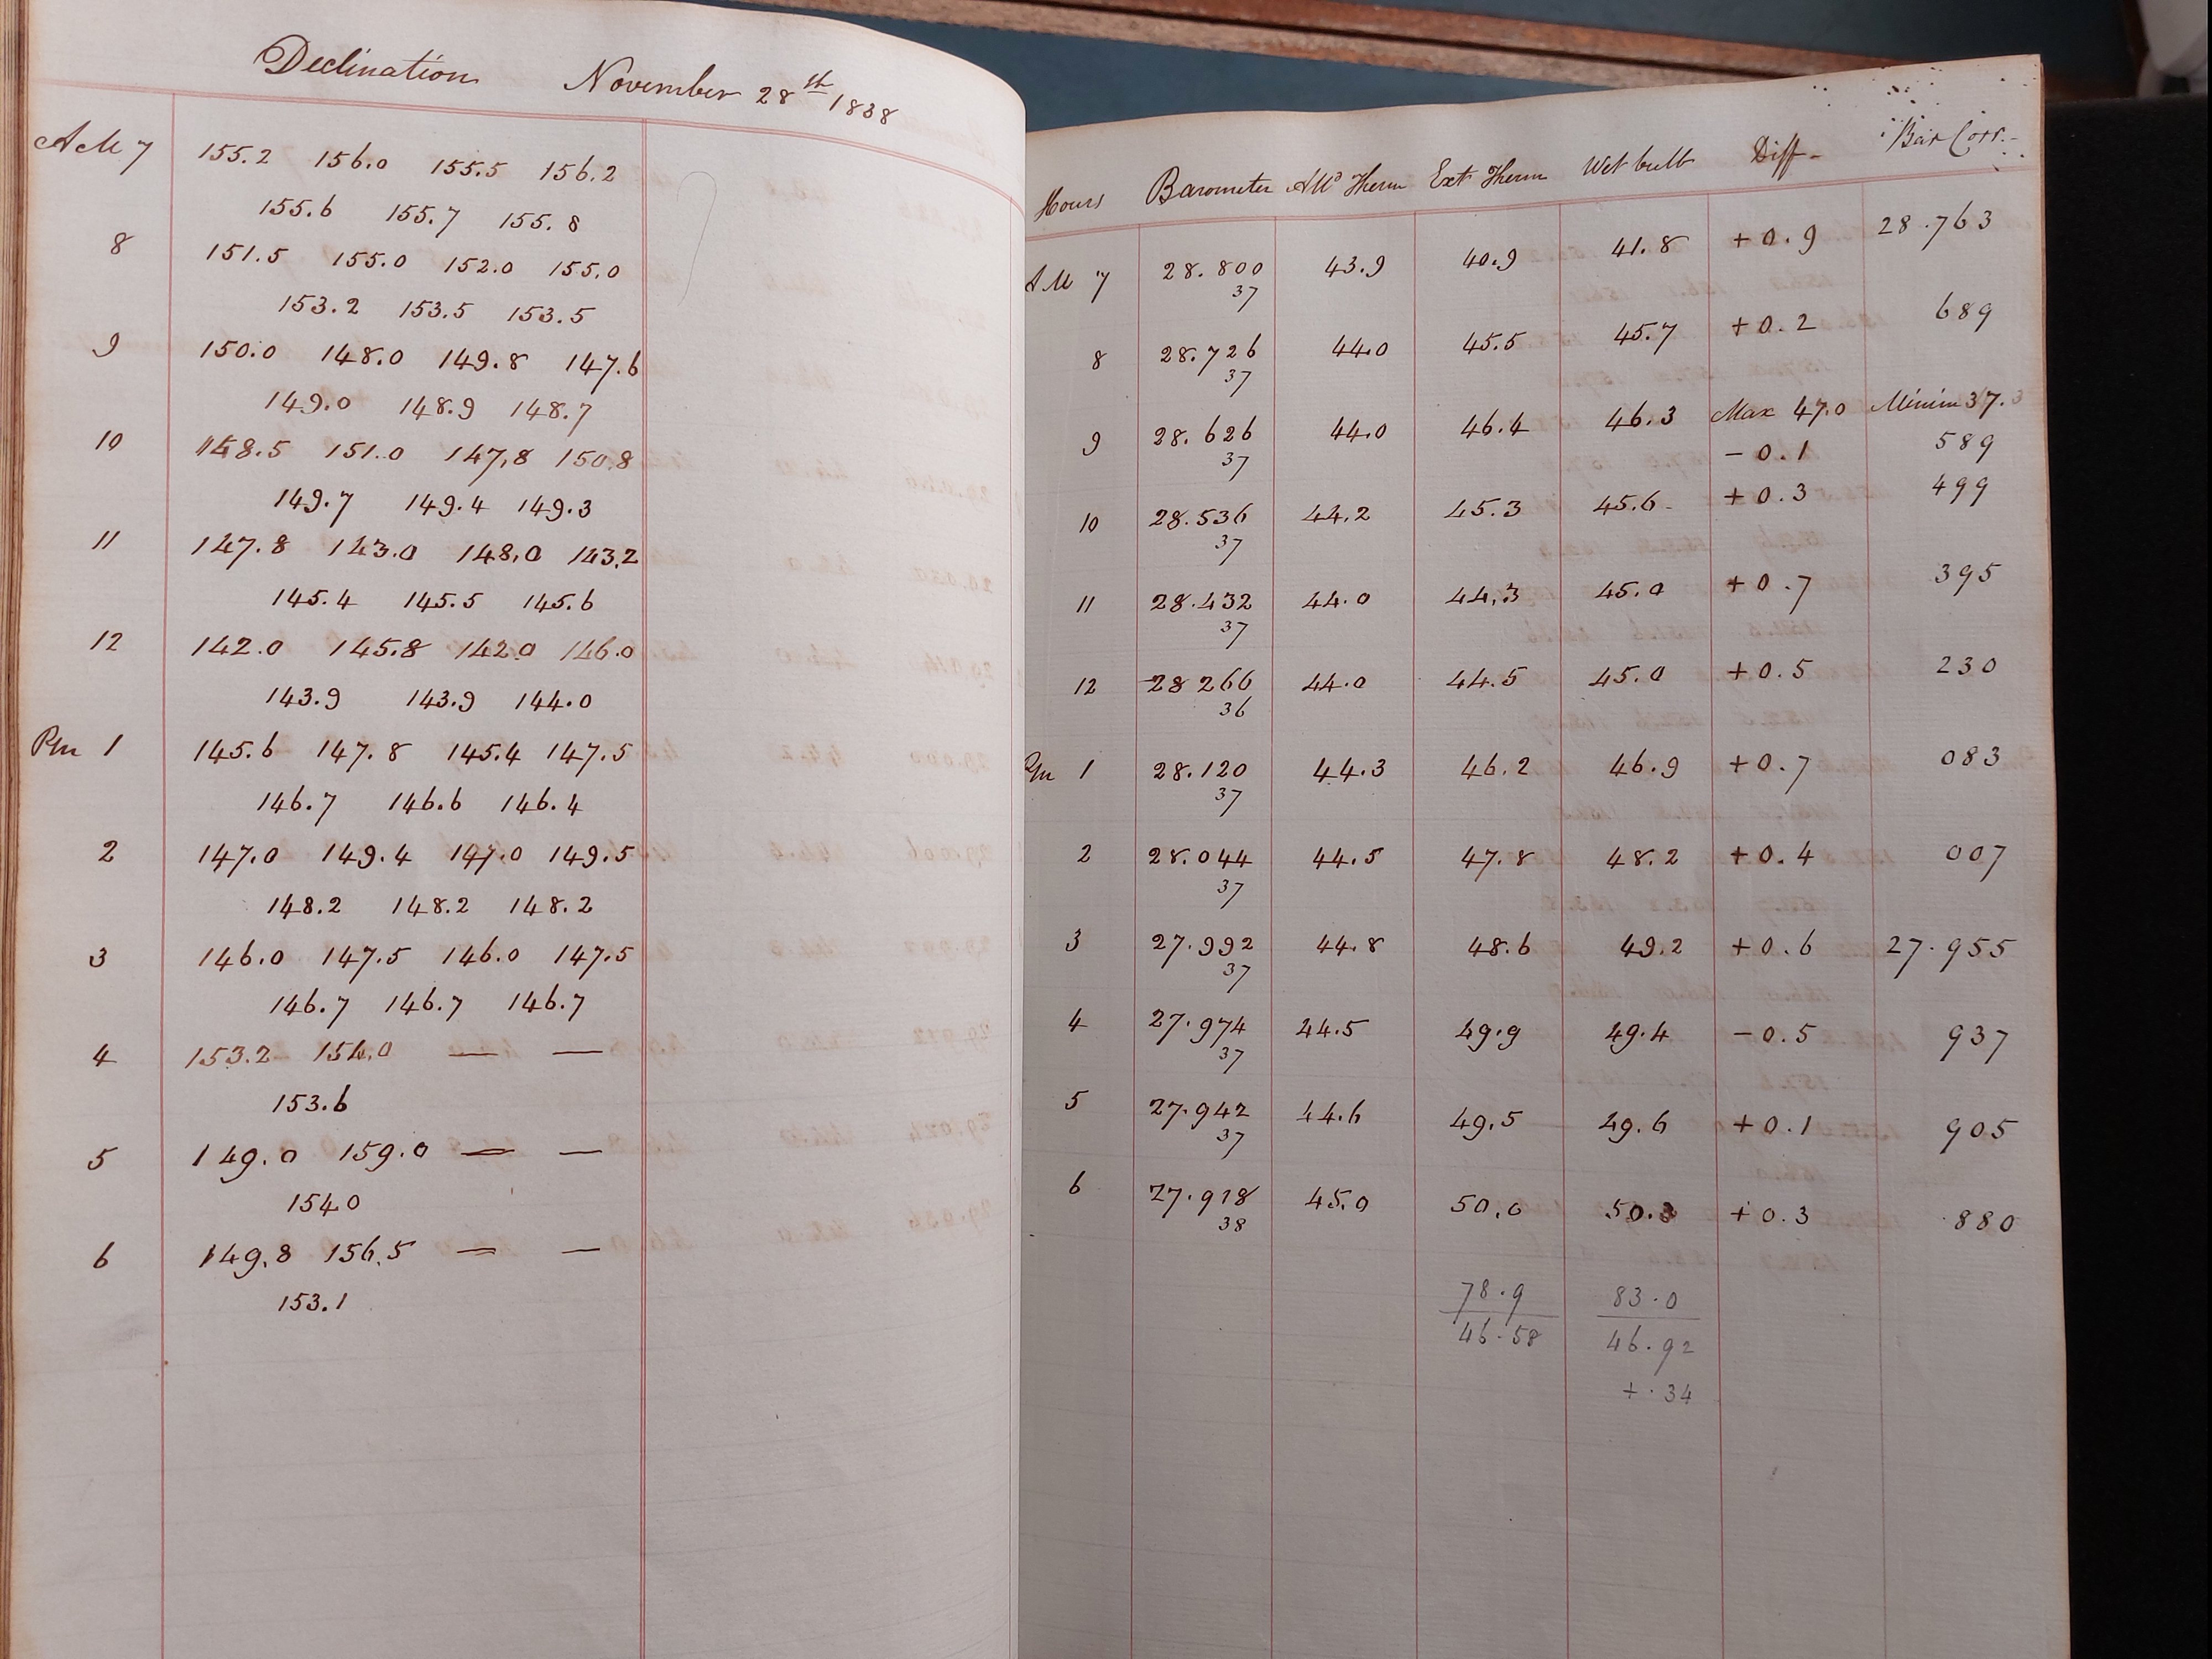 Declination November 28th 1838
AM 7 155.2 156.0 155.5 156.2
155.6 155.7 155.8
8 151.5 155.0 152.0 155.0
153.2 153.5 153.5
9 150.0 148.0 149.8 147.6
149.0 148.9 148.7
10 148.5 151.0 147.8 150.8
149.7 149.4 149.3
11 147.8 143.0 148.0 143.2
145.4 145.5 145.6
12 142.0 145.8 142.0 146.0
143.9 143.9 144.0
Pm 1 145.6 147.8 145.4 147.5
146.7 146.6 146.4
2 147.0 149.4 147.0 149.5
148.2 148.2 148.2
3 146.0 147.5 146.0 147.5
146.7 146.7 146.7
4 153.2 154.0 — —
153.6
5 149.0 159.0 — —
154.0
6 149.8 156.5 — —
153.1
Hours Barometer Attd Therm Ext Therm Wet bulb Diff- Bar Corr.-
AM 7 28.800 43.9 40.9 41.8 +0.9 28.763
37
8 28.726 44.0 45.5 45.7 +0.2 689
37
Max 47.0 Minim 37.3
9 28.626 44.0 46.4 46.3 -0.1 589
37
10 28.536 44.2 45.3 45.6- +0.3 499
37
11 28.432 44.0 44.3 45.0 +0.7 395
37
12 28 266 44.0 44.5 45.0 +0.5 230
36
Pm 1 28.120 44.3 46.2 46.9 +0.7 083
37
2 28.044 44.5 47.8 48.2 +0.4 007
37
3 27.992 44.8 48.6 49.2 +0.6 27.955
37
4 27.974 44.5 49.9 49.4 -0.5 937
37
5 27.942 44.6 49.5 49.6 +0.1 905
37
6 27.918 45.0 50.0 50.3 +0.3 880
38
78.9 83.0
46.58 46.92
+.34